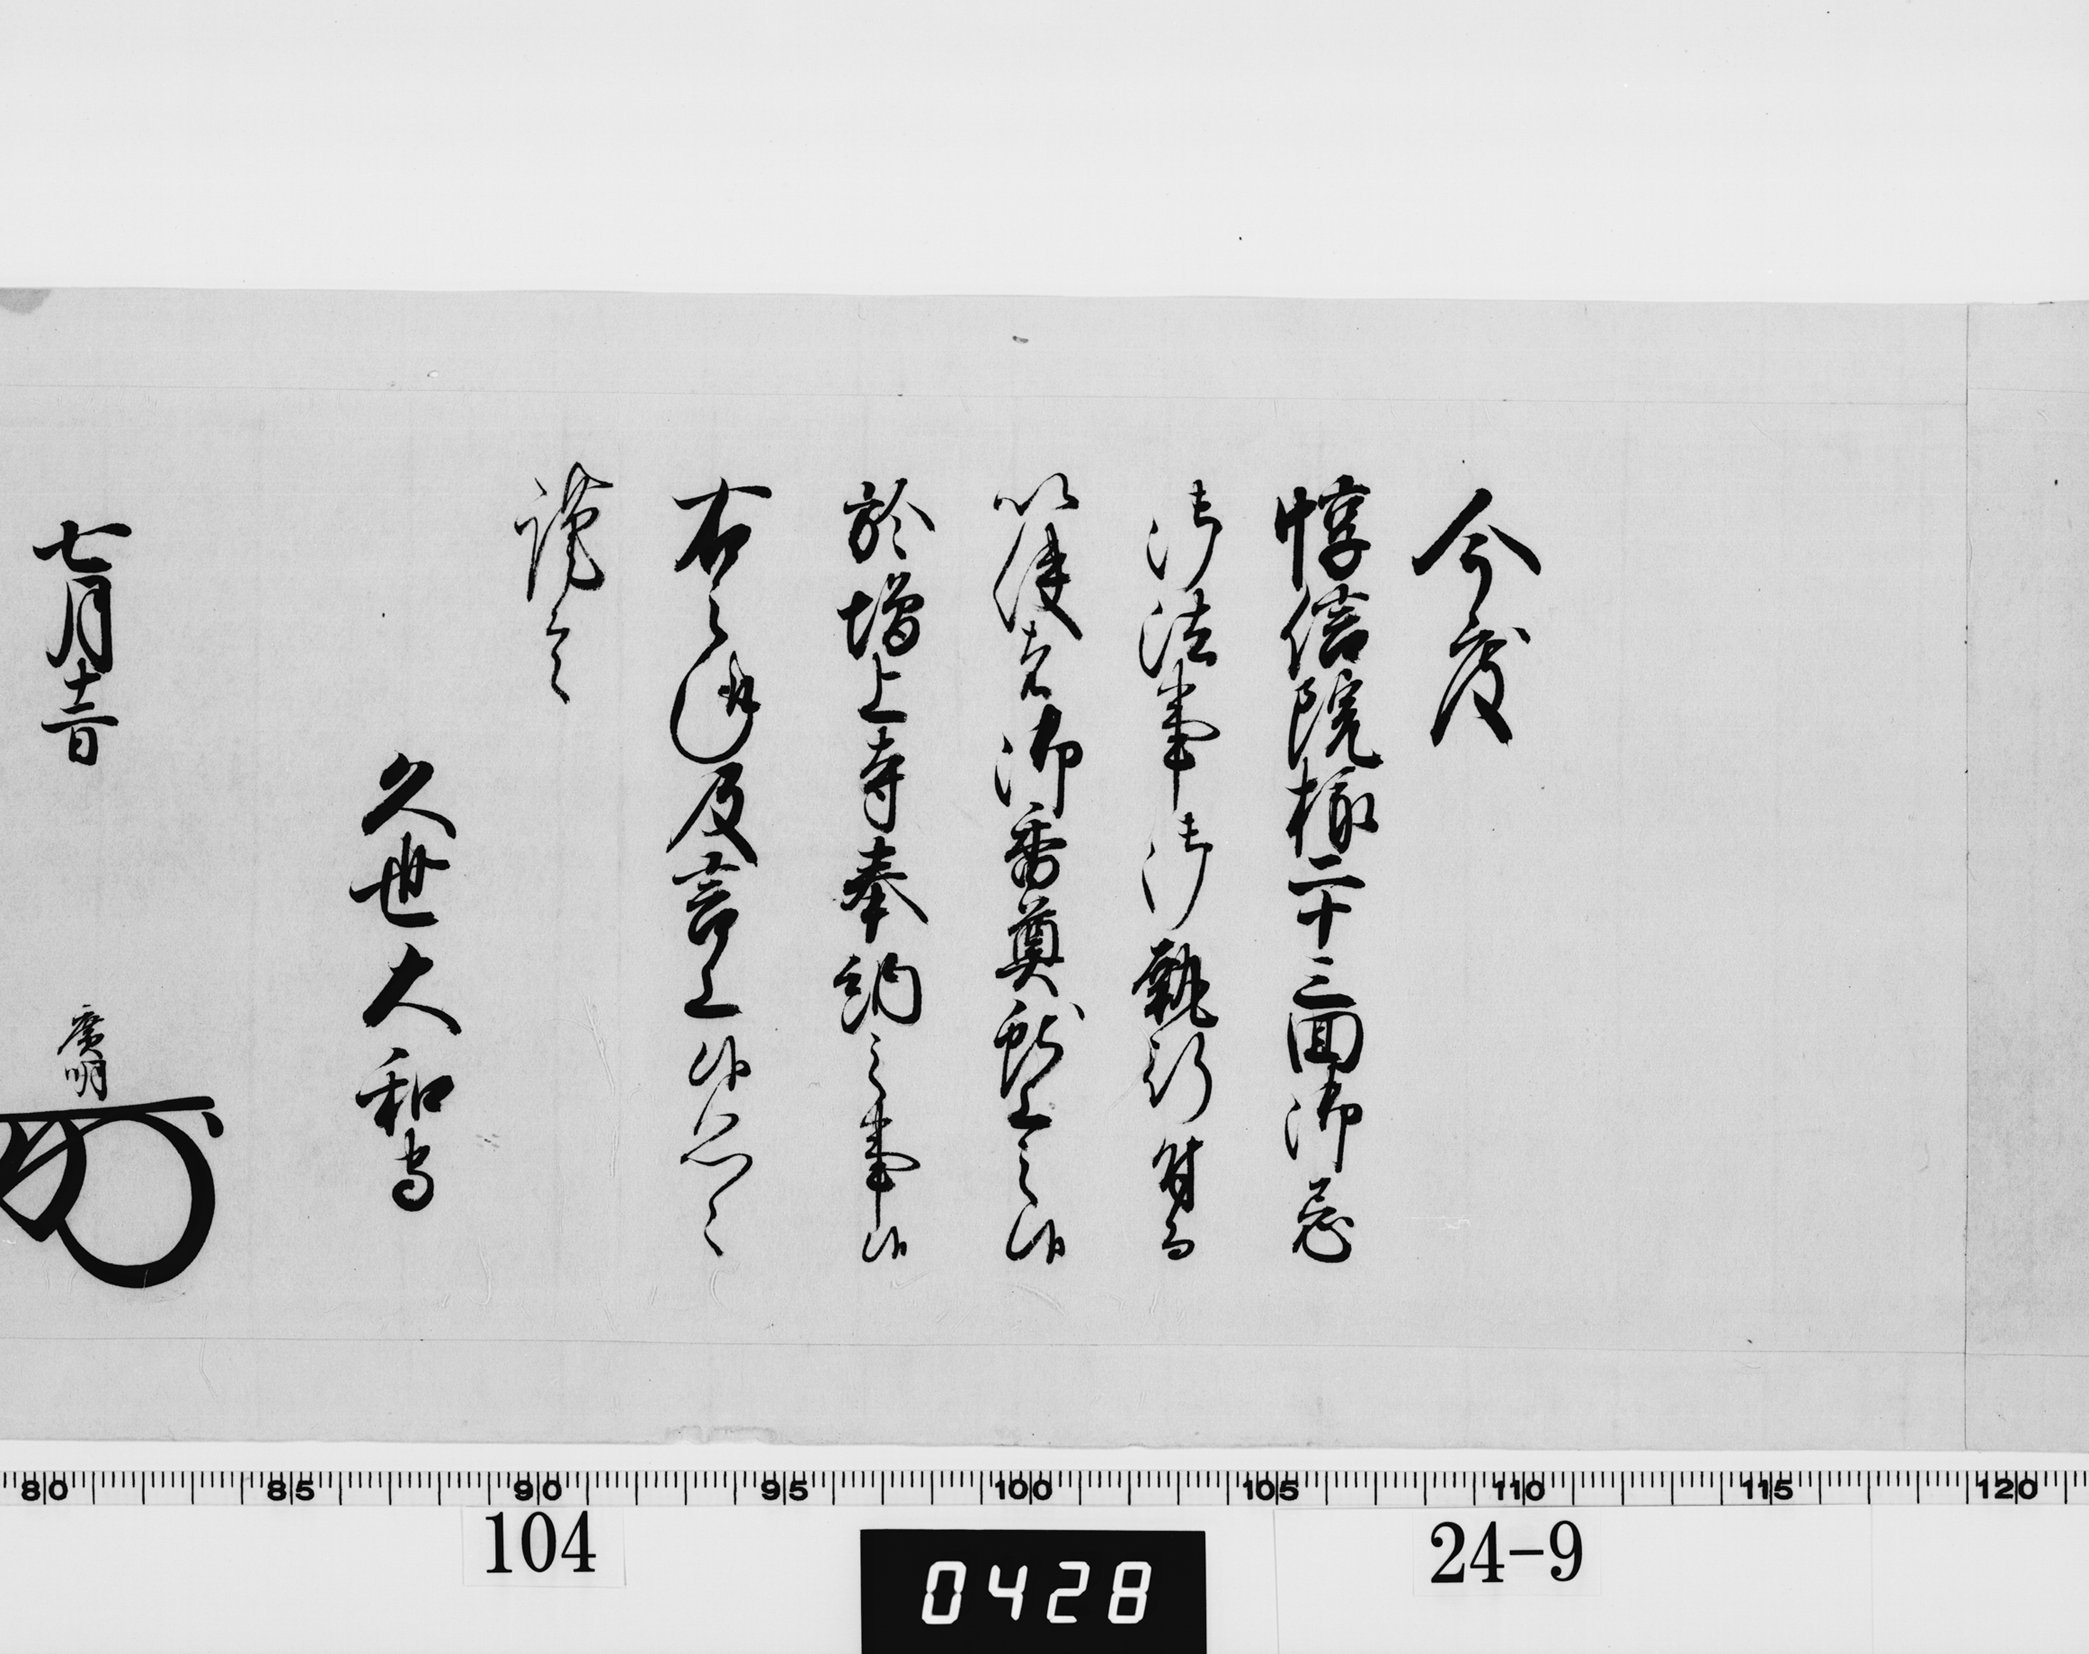 今度
惇信院様二十三回御忌
御法事御執行付而
以使者御香奠献上之候
於増上寺奉納之事候
右之趣及言上候恐々
謹言
久世大和守
七月十二日
廣明
80 85 90 95 100 105 110 115 120
104
0428
24-9